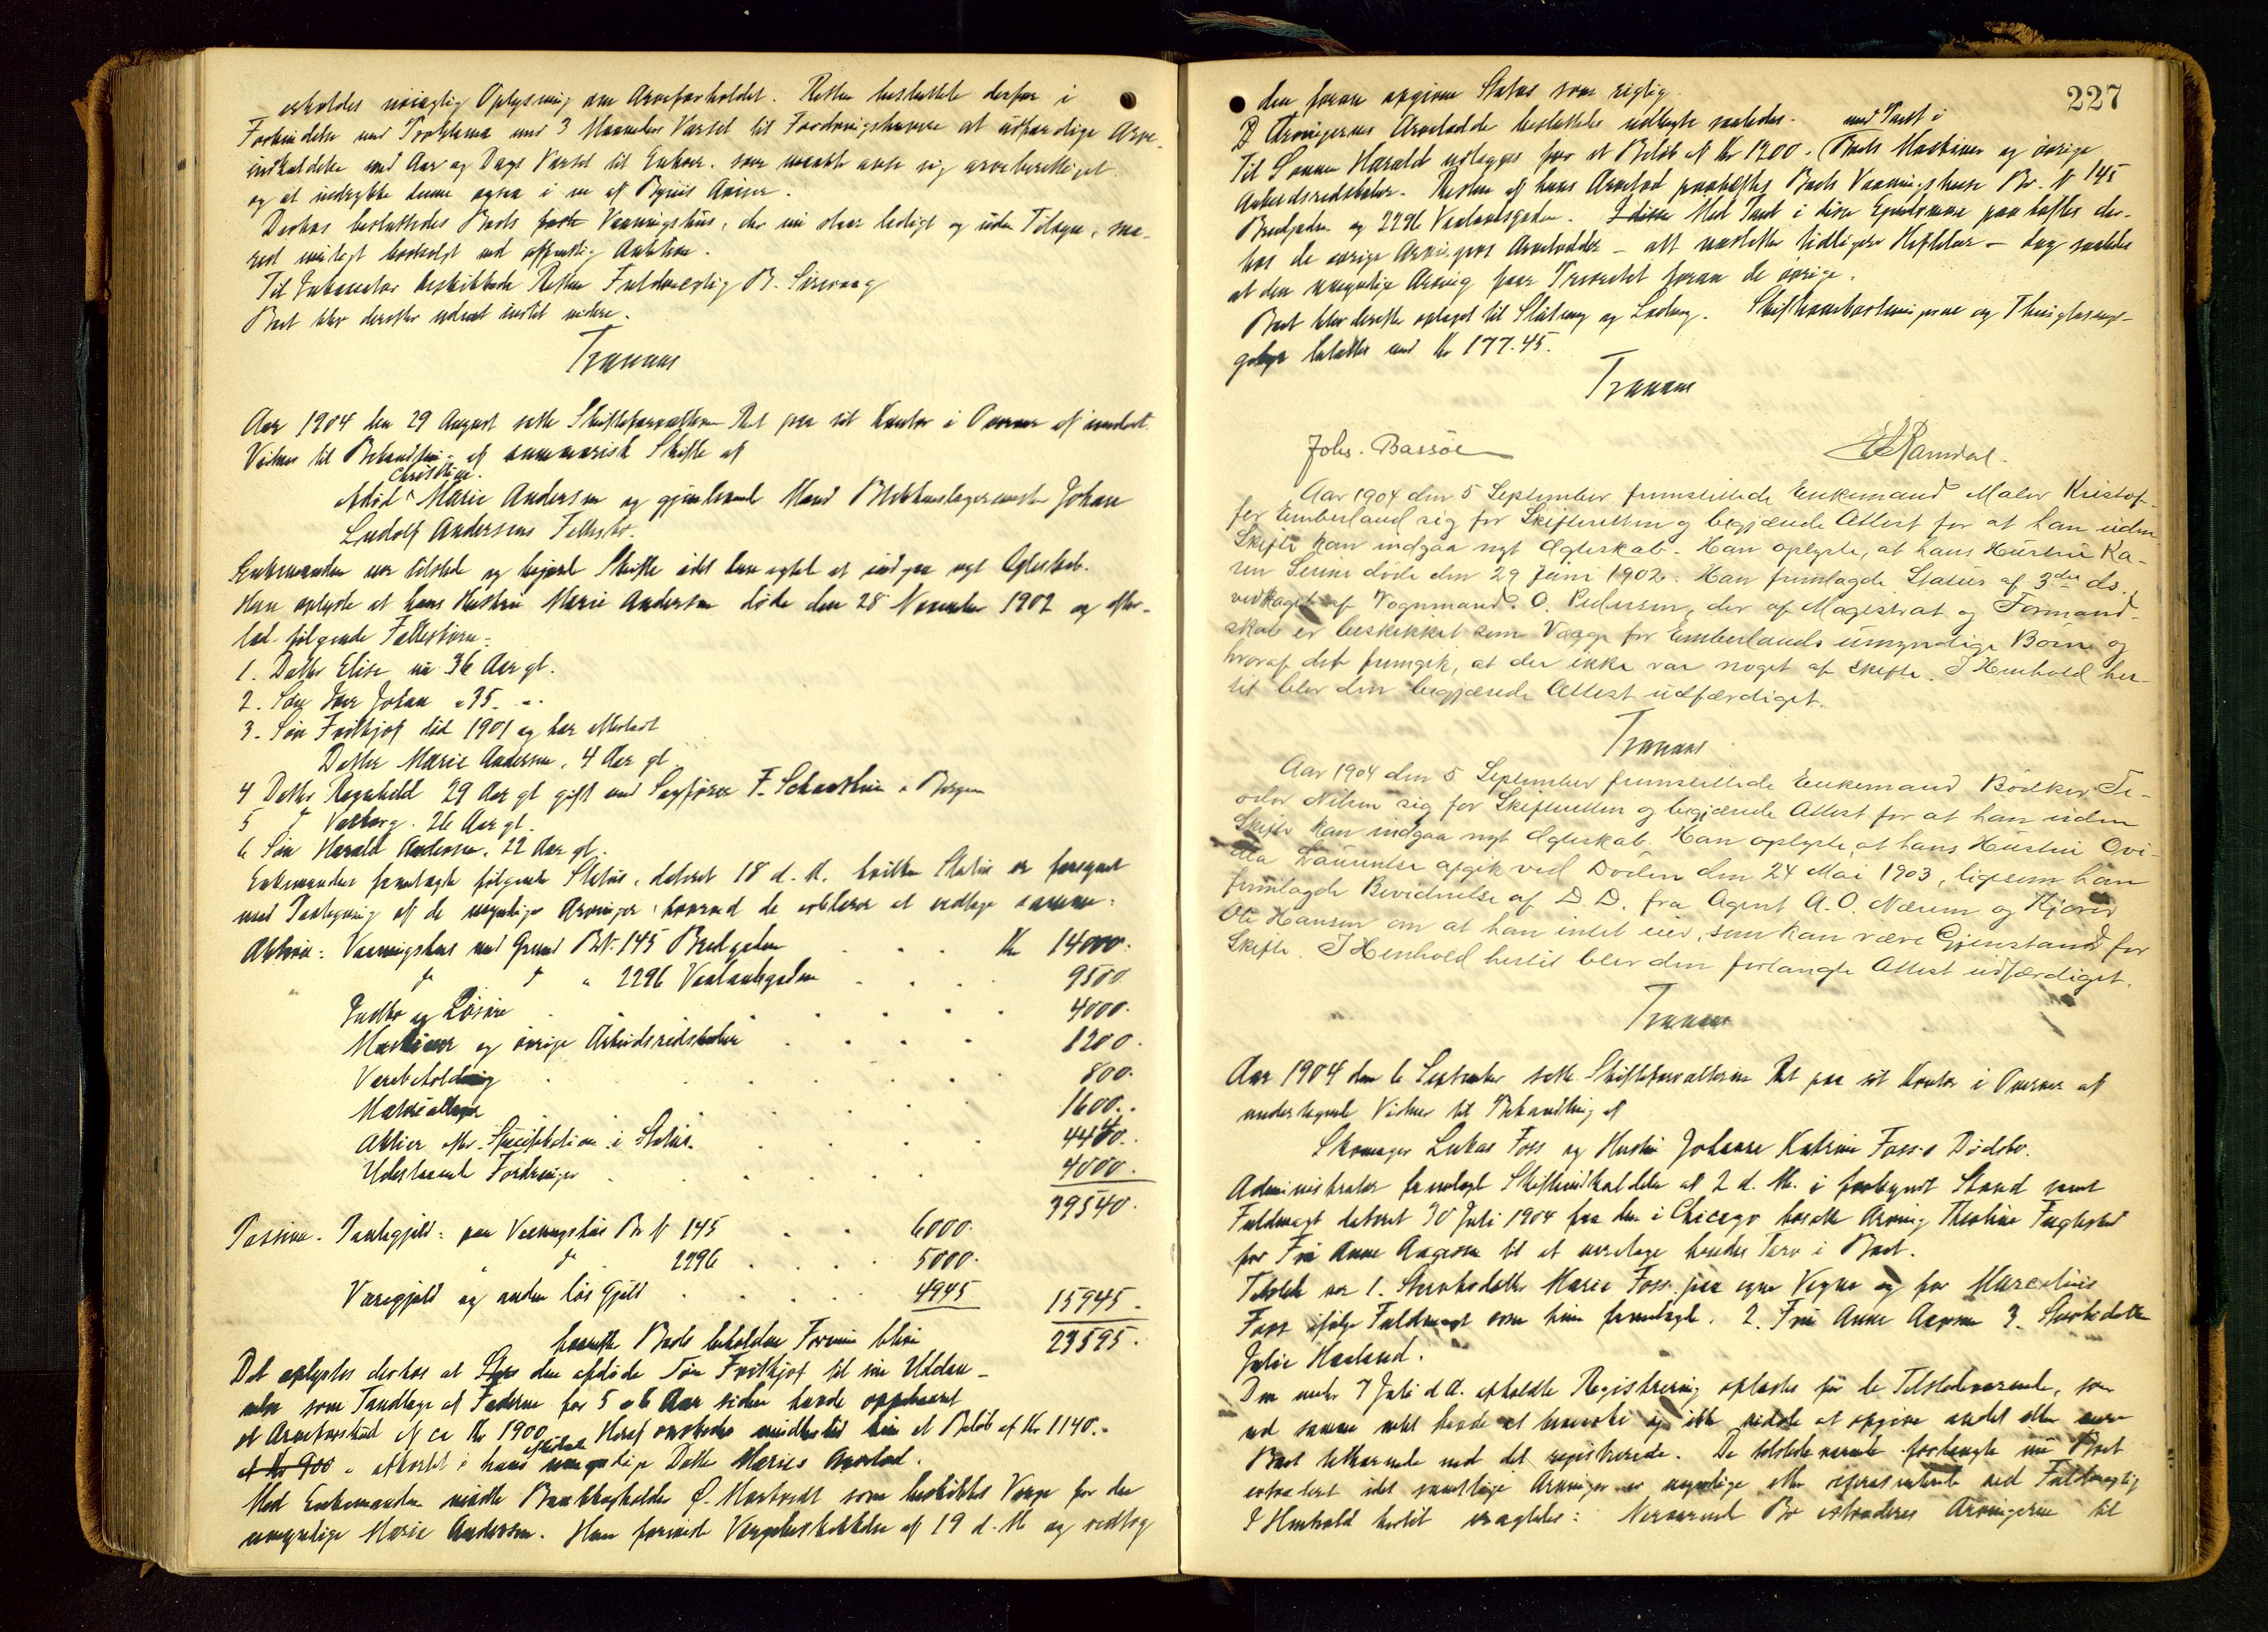 erholdes nöiagtig Oplysning om Arveforholdet. Retten besluttede derfor i
Forbindelse med Proklama med 3 Maaneders Varsel til Fordringshavere at udfærdige Arve-
indkaldelse med Aar og Dags Varsel til Enhver, som maatte anse sig arveberettiget
og at indrykke denne ogsaa i en af Byens Aviser.
Derhos besluttedes Boets Vaaningshus, der nu staar ledigt og uden Tilsyn, sna-
rest muligt bortsolgt ved offentlig Auktion.
Til Inkassator beskikkede Retten Fuldmægtig B. Sirevaag
Boet blev derefter udsat indtil videre.
Tranaas
Aar 1904 den 29 August satte Skifteforvalteren Ret paa sit Kontor i Overvær af undert.
Vidner til Behandling af summarisk Skifte af
Christine
afdöd Marie Andersen og gjenlevende Mand Blikkenslagermester Johan
Ludolf Andersens Fællesbo.
Enkemanden var tilstede og begjærte Skifte idet han agted at indgaa nyt Ægteskab.
Han oplyste at hans Hustru Marie Andersen döde den 28 November 1902 og efter-
lod følgende Fællesbörn:
1. Datter Elise nu 36 Aar gl.
2. Søn Iver Johan " 35 " "
3. Sön Fridthjof död 1901 og har efterladt
Datter Marie Andersen, 4 Aar gl.
4 Datter Ragnhild 29 Aar gl gift med Sagförer F. i Bergen
5 do Valborg. 26 Aar gl.
6 Sön Harald Andersen, 22 Aar gl.
Enkemanden fremlagde følgende Status, dateret 18 d. M. hvilken Status er forsynet
med Paategning af de myndige Arvinger, hvorved de erklærer at vedtage samme:
Aktiva: Vaaningshus med Grund Br. N. 145 Bredgaden Kr 14000.
do do " 2296 Vaalandsgaden 9500
Indbo og Løsøre 4000.
Maskiner og övrige Arbeidsredskaber 1200.
Varebeholdning 800.
Materialier 1600.
Aktier efter Specifikation i Status 4440.
Udestaaende Fordringer 4000.
39540.
Passiva. Pantegjæld: paa Vaaningshus Br N 145 6000.
" do 2296 5000.
Varegjæld og anden lös Gjæld 4945 15945.
hvorefter Boets beholdne Formue bliver 23595.
Det oplystes derhos at den afdøde Sön Fridthjof til sin Uddan-
nelse som Tandlæge af Faderen for 5 a 6 Aar siden havde oppebaaret
et Arveforskud af ca Kr 1900. Heraf önskedes imidlertid kun et Belöb af Kr 1140.-
af Kr 900 - afkortet i hans umyndige Datter Maries Arvelod.
Med Enkemanden mödte Bankbogholder Ø. som beskikket Værge for den
umyndige Marie Andersen. Han foreviste Værgebeskikkelse af 19 d. M og vedtog
227
den foran opgivne Status som rigtig.
D Arvingernes Arvelodde besluttedes udlagte saaledes. med Pant i
Til Sönnen Harald udlægges for et Belöb af Kr 1200. Boets Maskiner og övrige
Arbeidsredskaber. Resten af hans Arvelod paahefttes Boets Vaaningshuse Br. N 145
Bredgaden og 2296 Vaalandsgaden. I disse Med Pant i disse Eiendomme paahæftes der-
hos de övrige Arvingers Arvelodder - alt næstefter tidligere Heftelser - dog saaledes
at den umyndige Arving faar Prioritet foran de övrige.
Boet blev derefter optaget til Slutning og Lodning. Skifteomkostningerne og Thinglæsnings-
gebyr betaltes med Kr 177.45.
Tranaas
Johs. Bassöe
Ramdal.
Aar 1904 den 5 September fremstillede Enkemand Maler Kristof-
fer Emberland sig for Skifteretten og begjærede Attest for at han uden
Skifte kan indgaa nyt Ægteskab. Han oplyste, at hans Hustru Ka-
ren Serine døde den 29 Juni 1902. Han fremlagde Status af 3die ds.
vedtaget af Vognmand O. Pedersen, der af Magistrat og Formand-
skab er beskikket som Værge for Emberlands umyndige Børn og
hvoraf det fremgik, at der ikke var noget af skifte. I Henhold her-
til blev den begjærede Attest udfærdiget.
Tranaas
Aar 1904 den 5 September fremstillede Enkemand Bødker Te-
odor Nilsen sig for Skifteretten og begjærede Attest for at han uden
Skifte kan indgaa nyt Ægteskab. Han oplyste, at hans Hustru Ovi-
dia Laurentse afgik ved Døden den 24 Mai 1903, ligesom han
fremlagde Bevidnelse af D. D. fra Agent A. O. Nærem og Kjører
Ole Hansen om at han intet eier, som kan være Gjenstand for
Skifte. I Henhold hertil blev den forlangte Attest udfærdiget.
Tranaas
Aar 1904 den 6 September satte Skifteforvalteren Ret paa sit Kontor i Overvær af
undertegnede Vidner til Behandling af
Skomager Lukas Foss og Hustru Johanne Katrine Foss's Dødsbo.
Administrator fremlagde Skifteindkaldelse af 2 d. M. i forkyndt Stand samt
Fuldmagt dateret 30 Juli 1904 fra den i Chicago bosatte Arving Theoline Fuglested
for Fru Anne Aagesen til at varetage hendes Tarv i Boet.
Tilstede var 1. Sterbodatter Marie Foss paa egne Vegne og for Marcelius
Foss ifölge Fuldmagt som hun fremlagde. 2. Fru Anne Aagesen 3. Sterbodatter
Julie Haaland.
Den under 7 Juli d. A. afholdte Registrering oplæstes for de Tilstedeværende, som
ved samme intet havde at bemærke og ikke vidste at opgive andet eller mere
Boet tilhørende end det registrerede. De tilstedeværende forlangte nu Boet
extraderet idet samtlige Arvinger er myndige eller repræsenterede ved Fuldmægtig
I Henhold hertil eragtedes: Nærværende Bo extraderes Arvingerne til